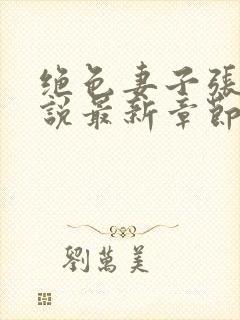 绝色妻子張
説最新章節
劉萬美